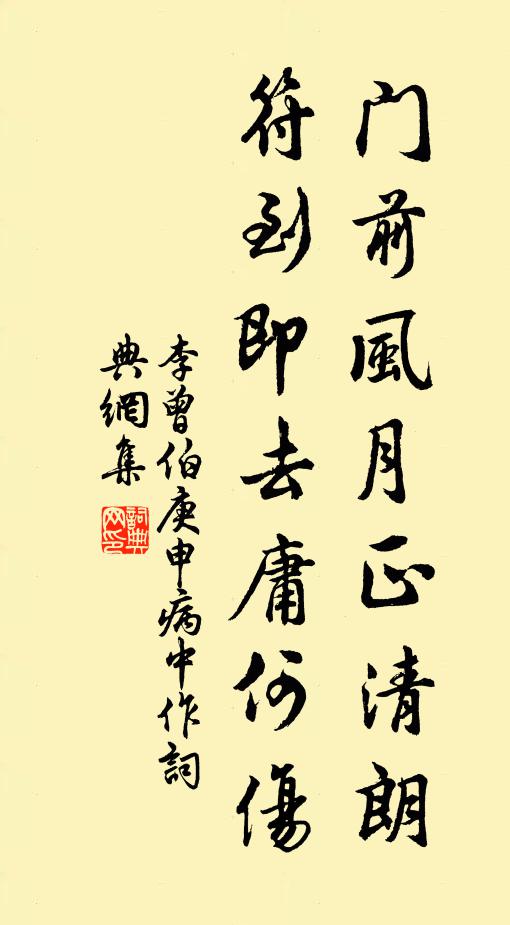 門前風月正清朗
符到即去庸何傷
李曾伯庚申病中作詞
典網集
詞典網印